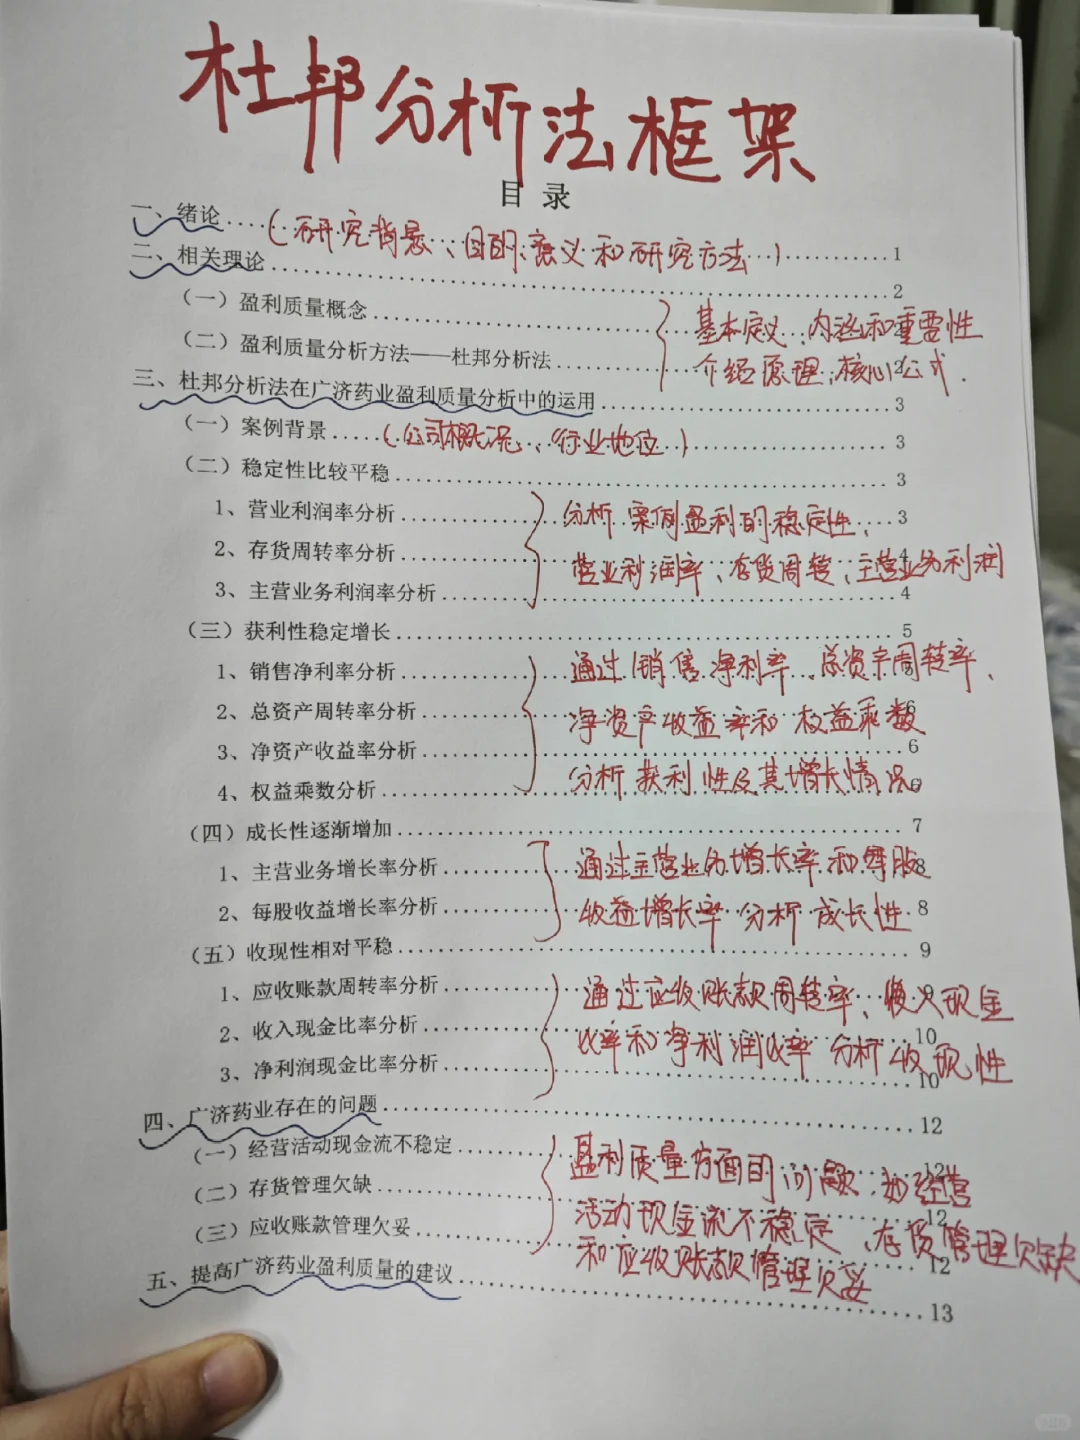 杜邦分析法框架
目 录
一、绪论....(研究背景、目的、意义和研究方法)..........1
二、相关理论..........2
(一)盈利质量概念..........基本定义、内涵和重要性
(二)盈利质量分析方法——杜邦分析法..........2
介绍原理、核心公式.
三、杜邦分析法在广济药业盈利质量分析中的运用..........3
(一)案例背景.....(公司概况、行业地位)..........3
(二)稳定性比较平稳..........3
1、营业利润率分析..........3
分析案例盈利的稳定性,
2、存货周转率分析..........4
营业利润率、存货周转、主营业务利润
3、主营业务利润率分析..........4
(三)获利性稳定增长..........5
1、销售净利率分析..........
通过销售净利率、总资产周转率、
2、总资产周转率分析..........6
净资产收益率和权益乘数
3、净资产收益率分析..........6
4、权益乘数分析..........6
分析获利性及其增长情况。
(四)成长性逐渐增加..........7
1、主营业务增长率分析..........8
通过主营业务增长率和每股
2、每股收益增长率分析..........8
收益增长率分析成长性
(五)收现性相对平稳..........9
1、应收账款周转率分析..........9
通过应收账款周转率、收入现金
2、收入现金比率分析..........10
比率和净利润比率分析收现性
3、净利润现金比率分析..........10
四、广济药业存在的问题..........12
(一)经营活动现金流不稳定..........12
盈利质量方面的问题,如经营
(二)存货管理欠缺..........12
活动现金流不稳定、存货管理欠缺
(三)应收账款管理欠妥..........12
和应收账款管理欠妥
五、提高广济药业盈利质量的建议..........13